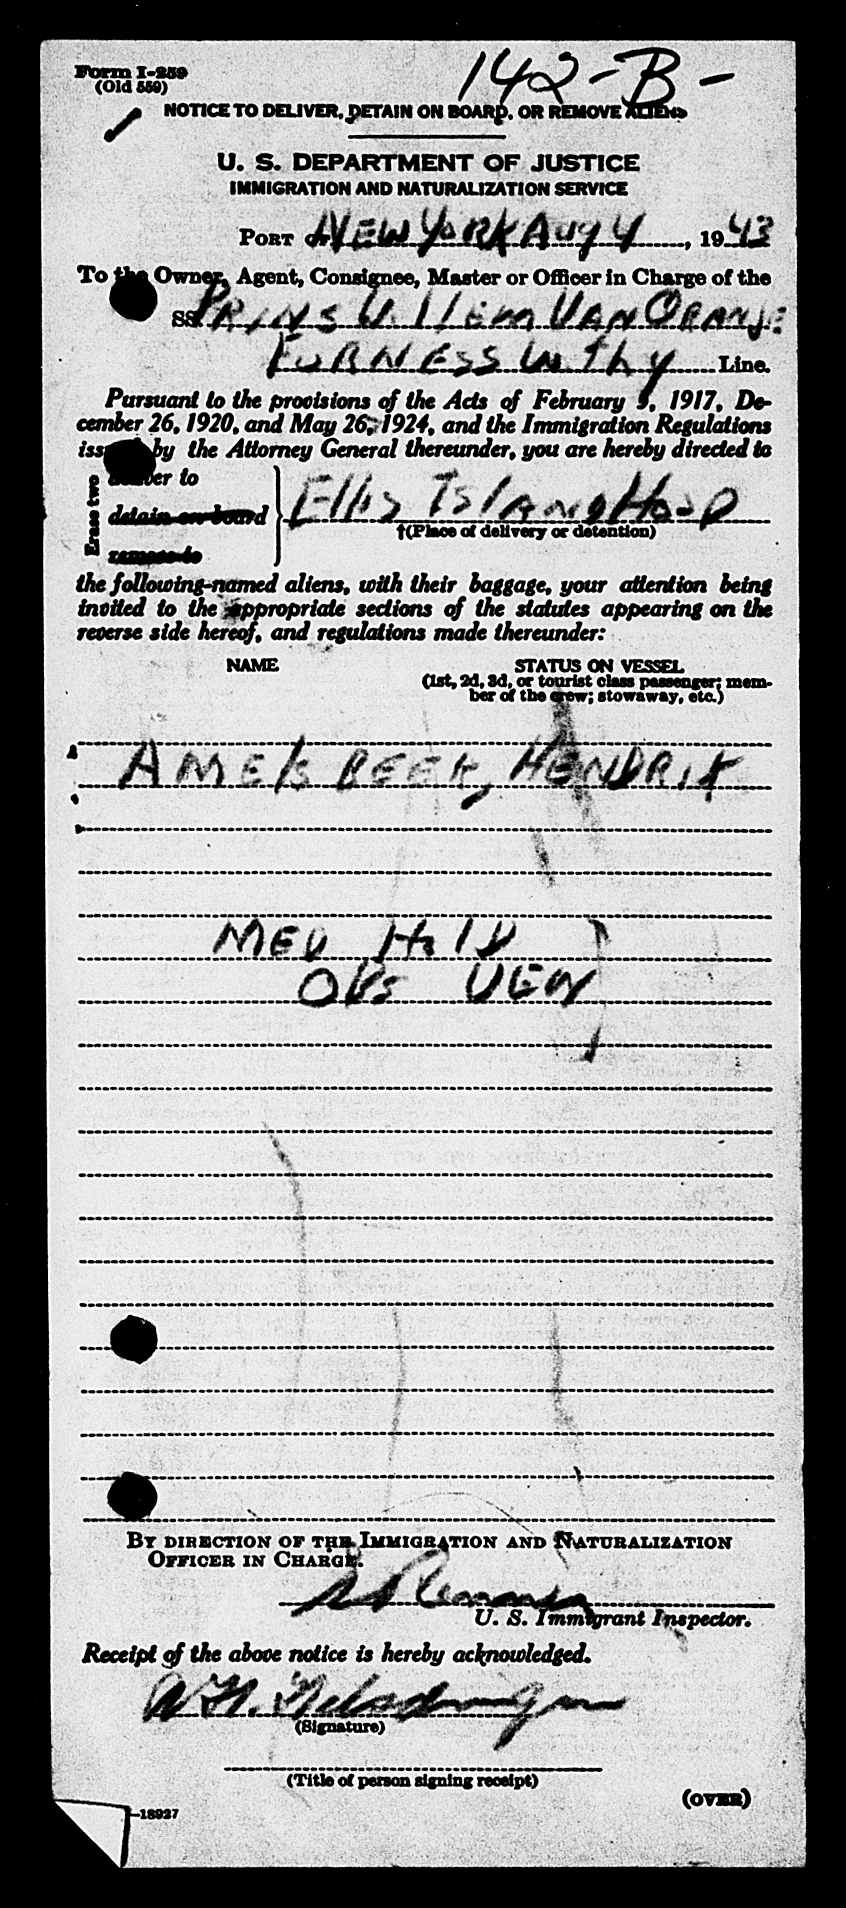 Form I-259
(Old 559)
142-B-
NOTICE TO DELIVER, DETAIN ON BOARD, OR REMOVE ALIENS
U. S. DEPARTMENT OF JUSTICE
IMMIGRATION AND NATURALIZATION SERVICE
PORT OF NEW YORK Aug 4, 1943
To the Owner, Agent, Consignee, Master or Officer in Charge of the
SS. PRINS WILLEM VAN ORANJE
FURNESS Withy Line.
Pursuant to the provisions of the Acts of February 5, 1917, De-
cember 26, 1920, and May 26, 1924, and the Immigration Regulations
issued by the Attorney General thereunder, you are hereby directed to
Erase two
deliver to
detain on board
remove to
Ellis Island Hosp
†(Place of delivery or detention)
the following-named aliens, with their baggage, your attention being
invited to the appropriate sections of the statutes appearing on the
reverse side hereof, and regulations made thereunder:
NAME STATUS ON VESSEL
(1st, 2d, 3d, or tourist class passenger; mem-
ber of the crew; stowaway, etc.)
AMELSBEEK, HENDRIK
MED HOLD
OBS VEN
BY DIRECTION OF THE IMMIGRATION AND NATURALIZATION
OFFICER IN CHARGE.
U. S. Immigrant Inspector.
Receipt of the above notice is hereby acknowledged.
(Signature)
(Title of person signing receipt)
(OVER)
—18937